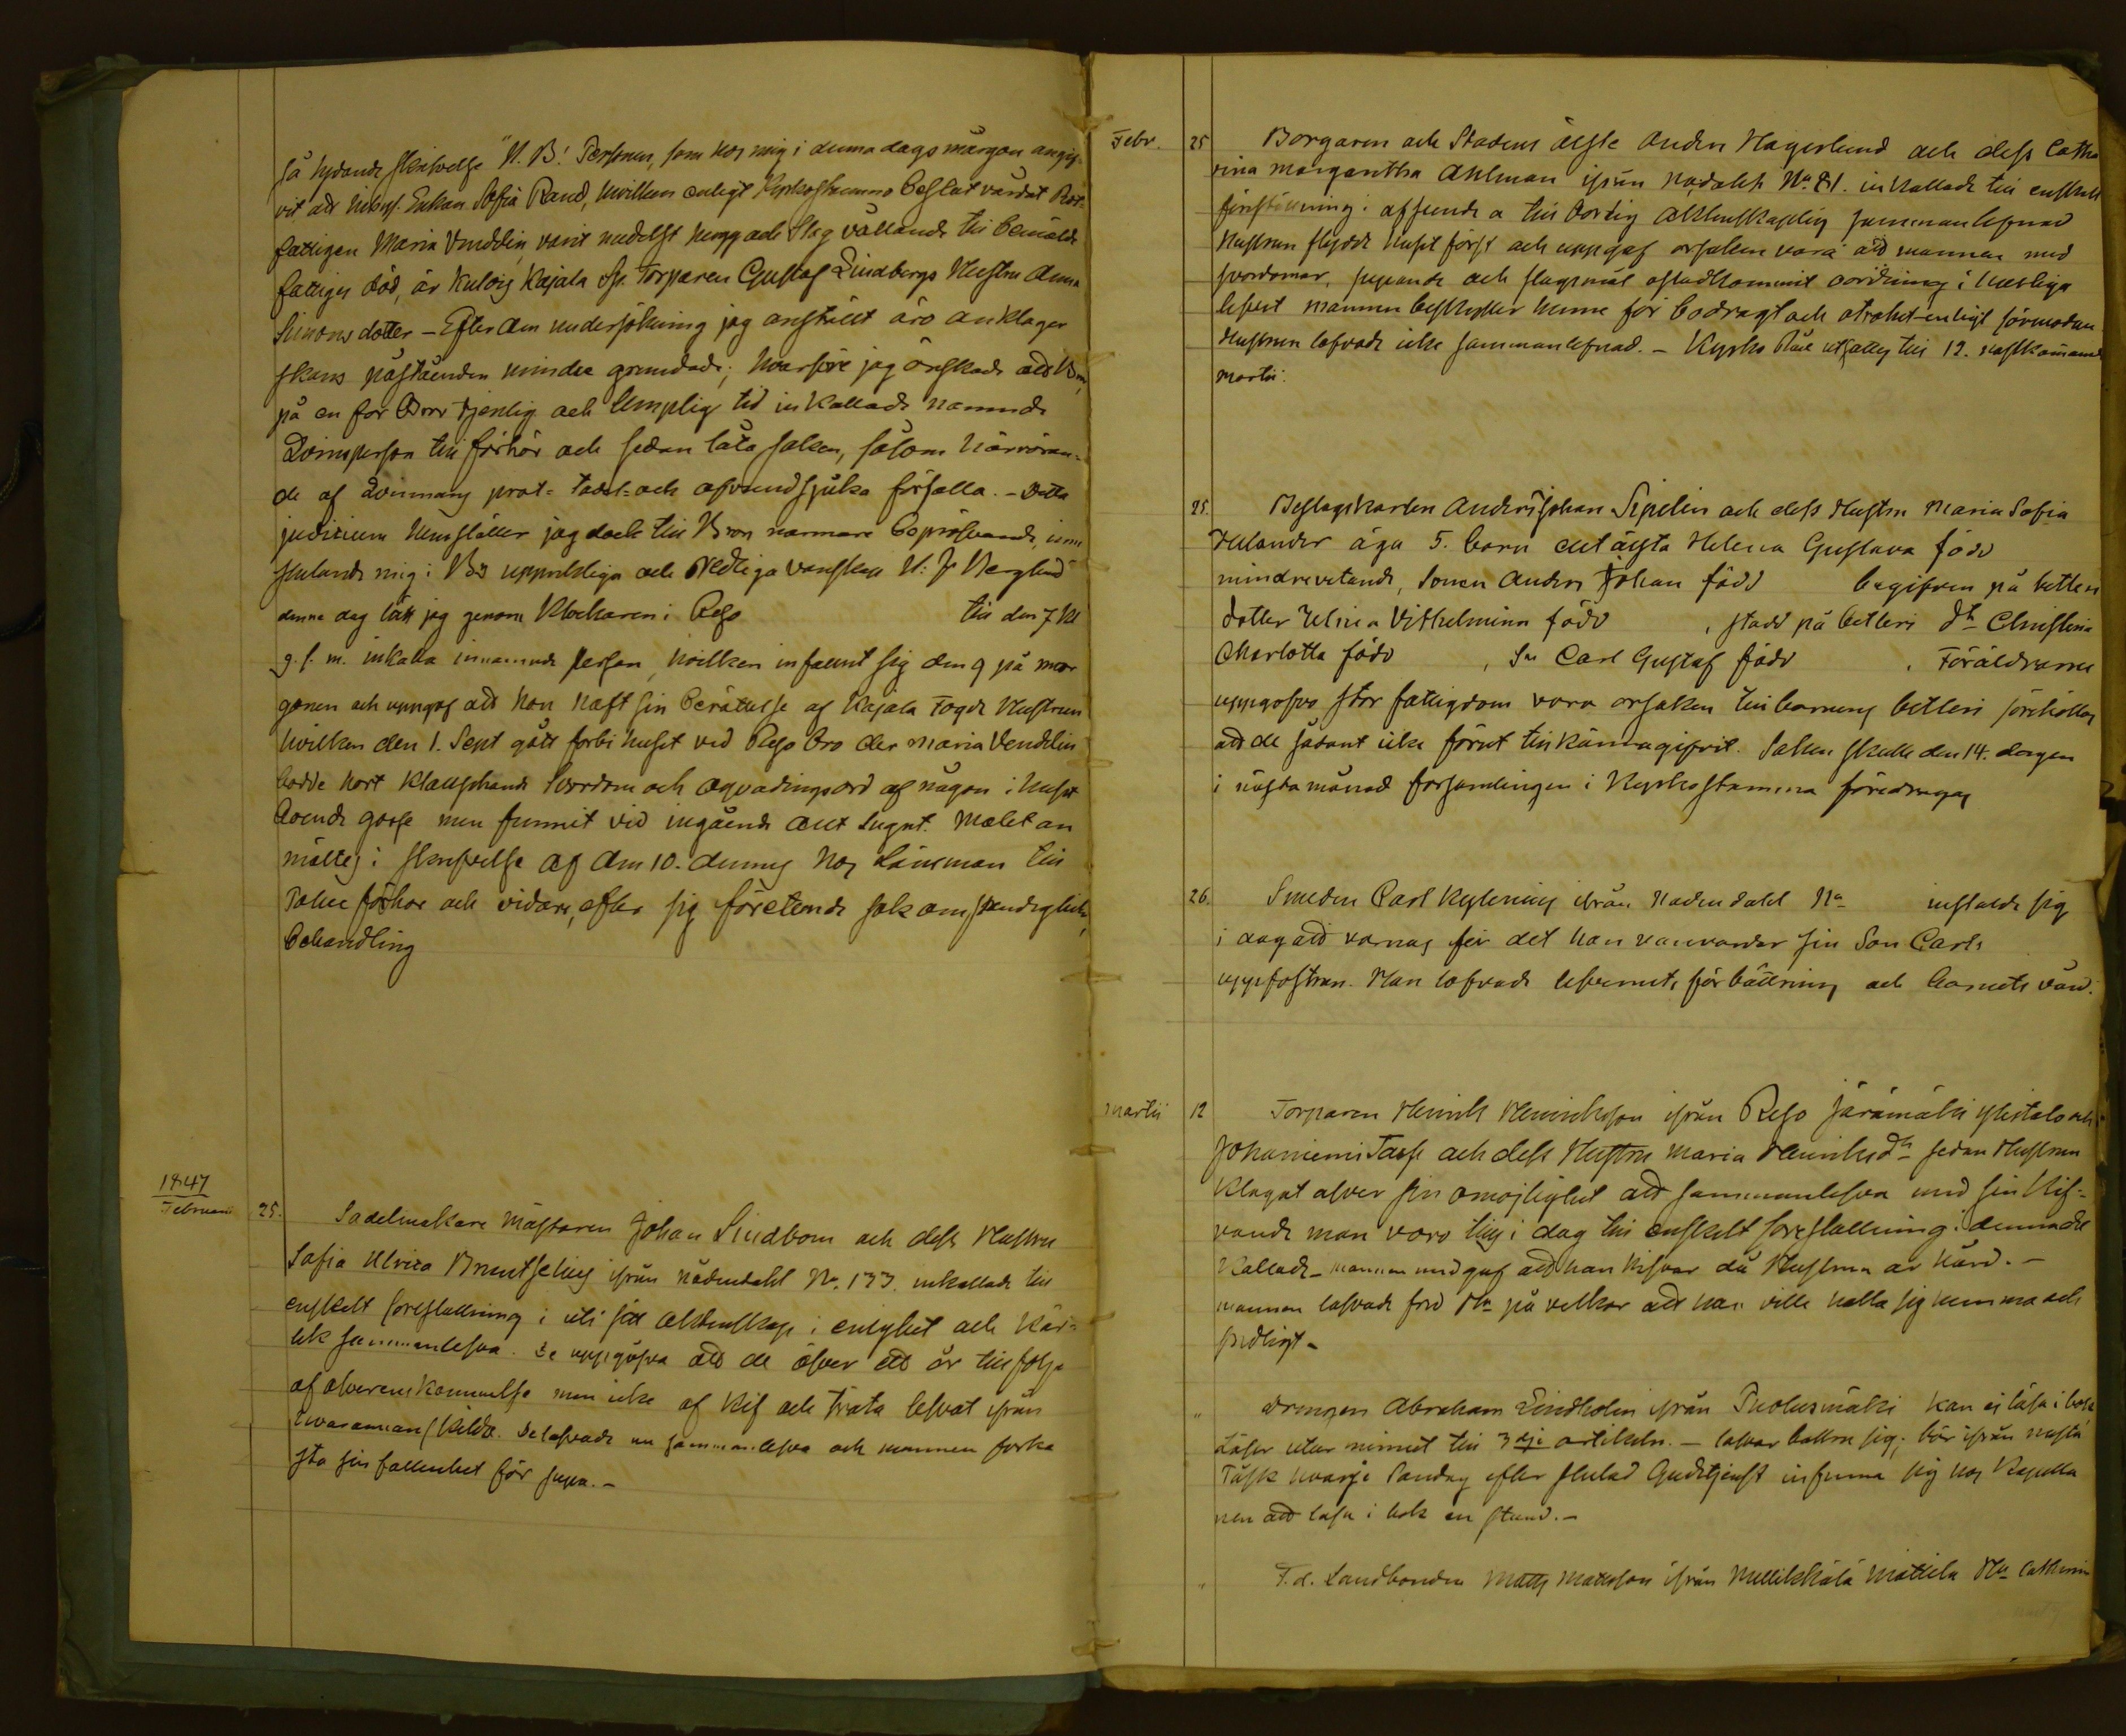 så lydande skrifvelse "N. B! Personen, som hos mig i denna dags mårgon angif-
vit att inhys. Enkan Sofia Rand, hvilken enligt Kyrkostämmo beslut vårdat Rot-
fattigen Maria Vendelin, varit medelst hugg och slag vållande till bemälde
fattiges död, är Kuloig Kajala Sp. Torparen Gustaf Lindbergs Hustru Anna
Simonsdotter – Efter den undersökning jag anställt äro anklager-
skans påståenden mindre grundade; hvarföre jag önskade att Bn,
på en för Bror tjenlig och lemplig tid inkallade nämnde
Qvinsperson till förhör och sedan låta saken, såsom härröran-
de af Qvinnans prat- tadel- och afvundsjuka förfalla. – Detta
judicium hemställer jag dock till Bror närmare bepröfvande, inne
slutande mig i Brs uppriktiga och redliga vänskap N: J: Berglund"
denna dag lätt jag genom Klockaren i Reso till den 7 Kl
9. f. m. inkalla innämnde person, hvilken infaunt sig den 9 på mor
gonen och uppgaf att hon haft sin berättelse af Kajala Fogde Hustrun
hvilken den 1. Sept gått förbi huset vid Reso bro der Maria Vendelin
bodde hört klappande Svordom och oqvädingsord af någon i huset
boende gosse men funnit vid ingående allt lugnt. Målet an
mältes i skrifvelse af den 10. dennes hos Länsman till
Police förhör och vidare, efter sig företeende sak omständigheter,
behandling
1847
Februarii 25. Sadelmakare Mästaren Johan Lindbom och dess Hustru
Sofia Ulrica Brentseling ifrån Nådendahl No. 133. inkallade till
enskelt föreställning i uti sitt äktenskap i enighet och kär-
lek sammanlefva. De uppgåfvo att de öfver ett år till följe
af öfverenskommelse men icke af kif och träta lefvat ifrån
hvarannan skilda. De lofvade nu sammanlefva och mannen forka
sta sin fallenhet för supa. –
Febr. 25 Borgaren och Stadens älste Anders Hagerlund och dess Catha
rina Margaretha Ahlman ifrån Nådahls No. 81. inkallade till enskelt
föreställning i afseende a till oordig äktenskaplig sammanlefnad
Hustrun flydde huset först och uppgaf orsaken vara att mannen med
svordomar, supande och slagsmål åstadkommit oordning i husliga
lefvet mannen beskyller henne för bedrägt och otrohet enligt förmodan
Hustrun lofvade icke sammanlefnad. – Kyrko Råd utsattes till 12. nästkommande
Martii.
25. Beslagskarlen Anders Johan Sipelin och dess Hustru Maria Sofia
Helander äga 5. barn det älsta Helena Gustava född
mindrevetande, Sonen Anders Johan född begifven på betteri
dotter Helena Vilhelmina född , stadd på betleri dr Christina
Charlotta född , Sn Carl Gustaf född . Föräldrarne
uppgåfvo stor fattigdom vara orsaken till barnens betleri förehölls
att de sådant icke förut tillkännagifvit. Saken skulle den 14. dagen
i nästa månad församlingen i Kyrkostämma föredragas
26. Smeden Carl Kylening ifrån Nådendahl No instälde sig
i dag att varnas för det han vanvårdar sin Son Carls
uppfostran. Han lofvade lefvernets förbättring och barnets vård.
Martii 12 Torparen Henrik Henriksson ifrån Reso Järämäki Ylistalo och
Johaniemi Tarp och dess Hustru Maria Henriksdr sedan Hustrun
klagat öfver sin omöjlighet att sammanlefva med sin Kif-
vande man voro till i dag till enskelt föreställning i denna del
kallade – mannen medgaf att han kifvar då Hustrun är hård. –
mannen lofvade frid Hn på vilkor att han ville hålla sig hemma och
fredligt –
" Drengen Abraham Lindholm ifrån Tuolusmäki kan ej läsa i bok
Läser utur minnet till 3dje artikeln. – lofvar bättra sig; bör ifrån nästa
Påsk hvarje Söndag efter slutad Gudstjenst infinna sig hos Kapella
nen att läsa i bok en stund. –
" F. d. Landbonden Matts Mattsson ifrån Mellikkälä Mattila Hu Catharin